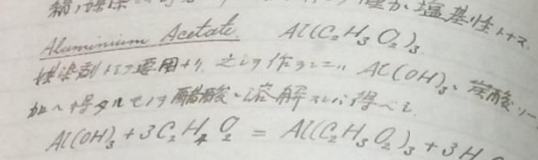 稍 塩基性トナス
Aluminium Acetate. Al(C₂H₃O₂)₃.
媒染剤トシテ要用ナリ、之レヲ作ルニハ Al(OH)₃、炭酸ソー
加ヘ得タルモノヲ醋酸ニ溶解スレバ得ベシ
Al(OH)₃ + 3C₂H₄O₂ = Al(C₂H₃O₂)₃ + 3H